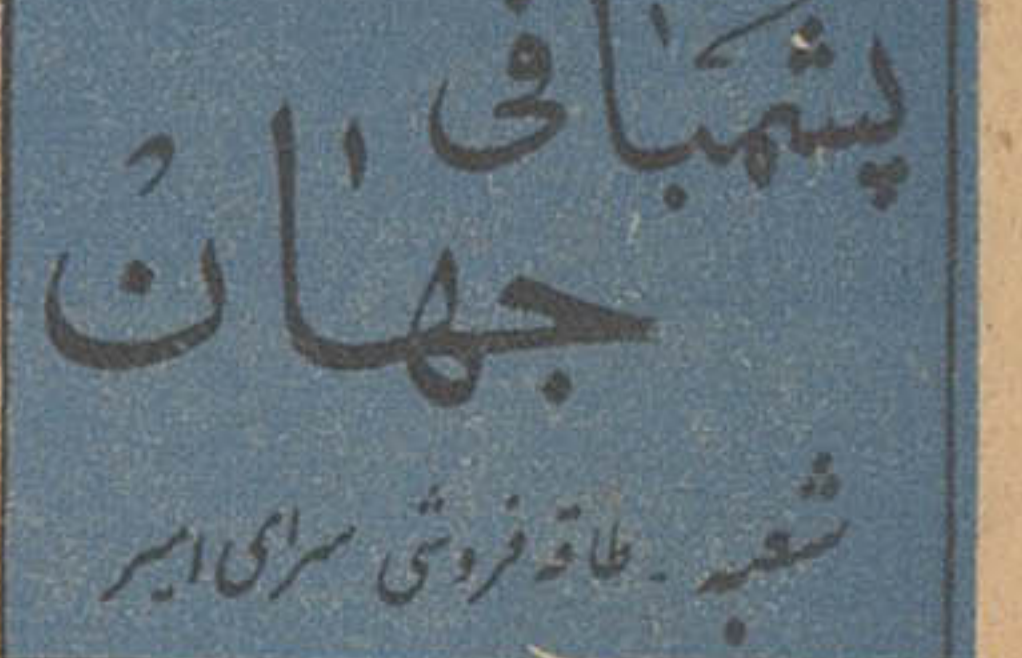 پشمبافی
جهان
شعبه - طاقه فروشی سرای امیر